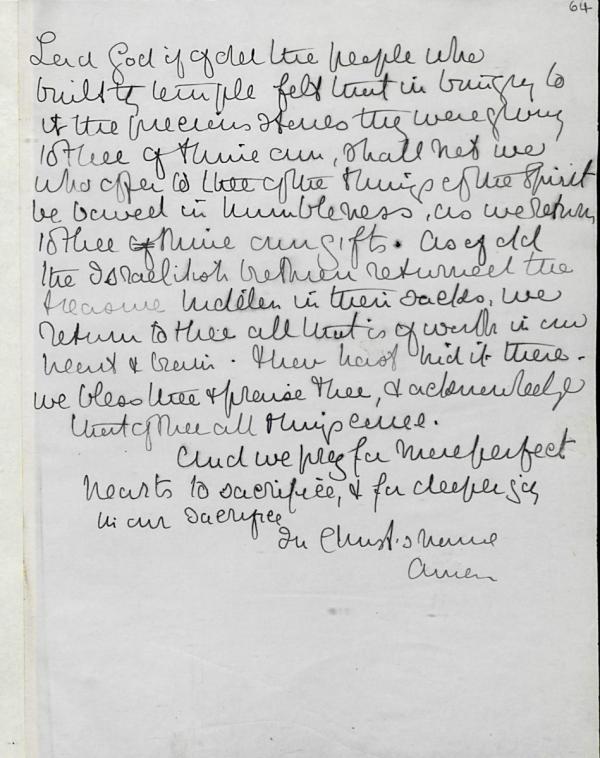 64
Lord God if of old the people who
built thy temple felt that in bringing to
it the precious stones they were giving
to thee of thine own, shall not we
who offer to thee of the things of the Spirit
be bowed in humbleness, as we return
to thee of thine own gifts. As of old
the Israelitish brethren returned the
treasure hidden in their sacks, we
return to thee all that is of worth in our
heart & brain. Thou hast hid it there.
we bless thee & praise thee, & acknowledge
that of thee all things come.
And we pray for more perfect
hearts to sacrifice, & for deeper joy
in our sacrifice
In Christ's name
Amen